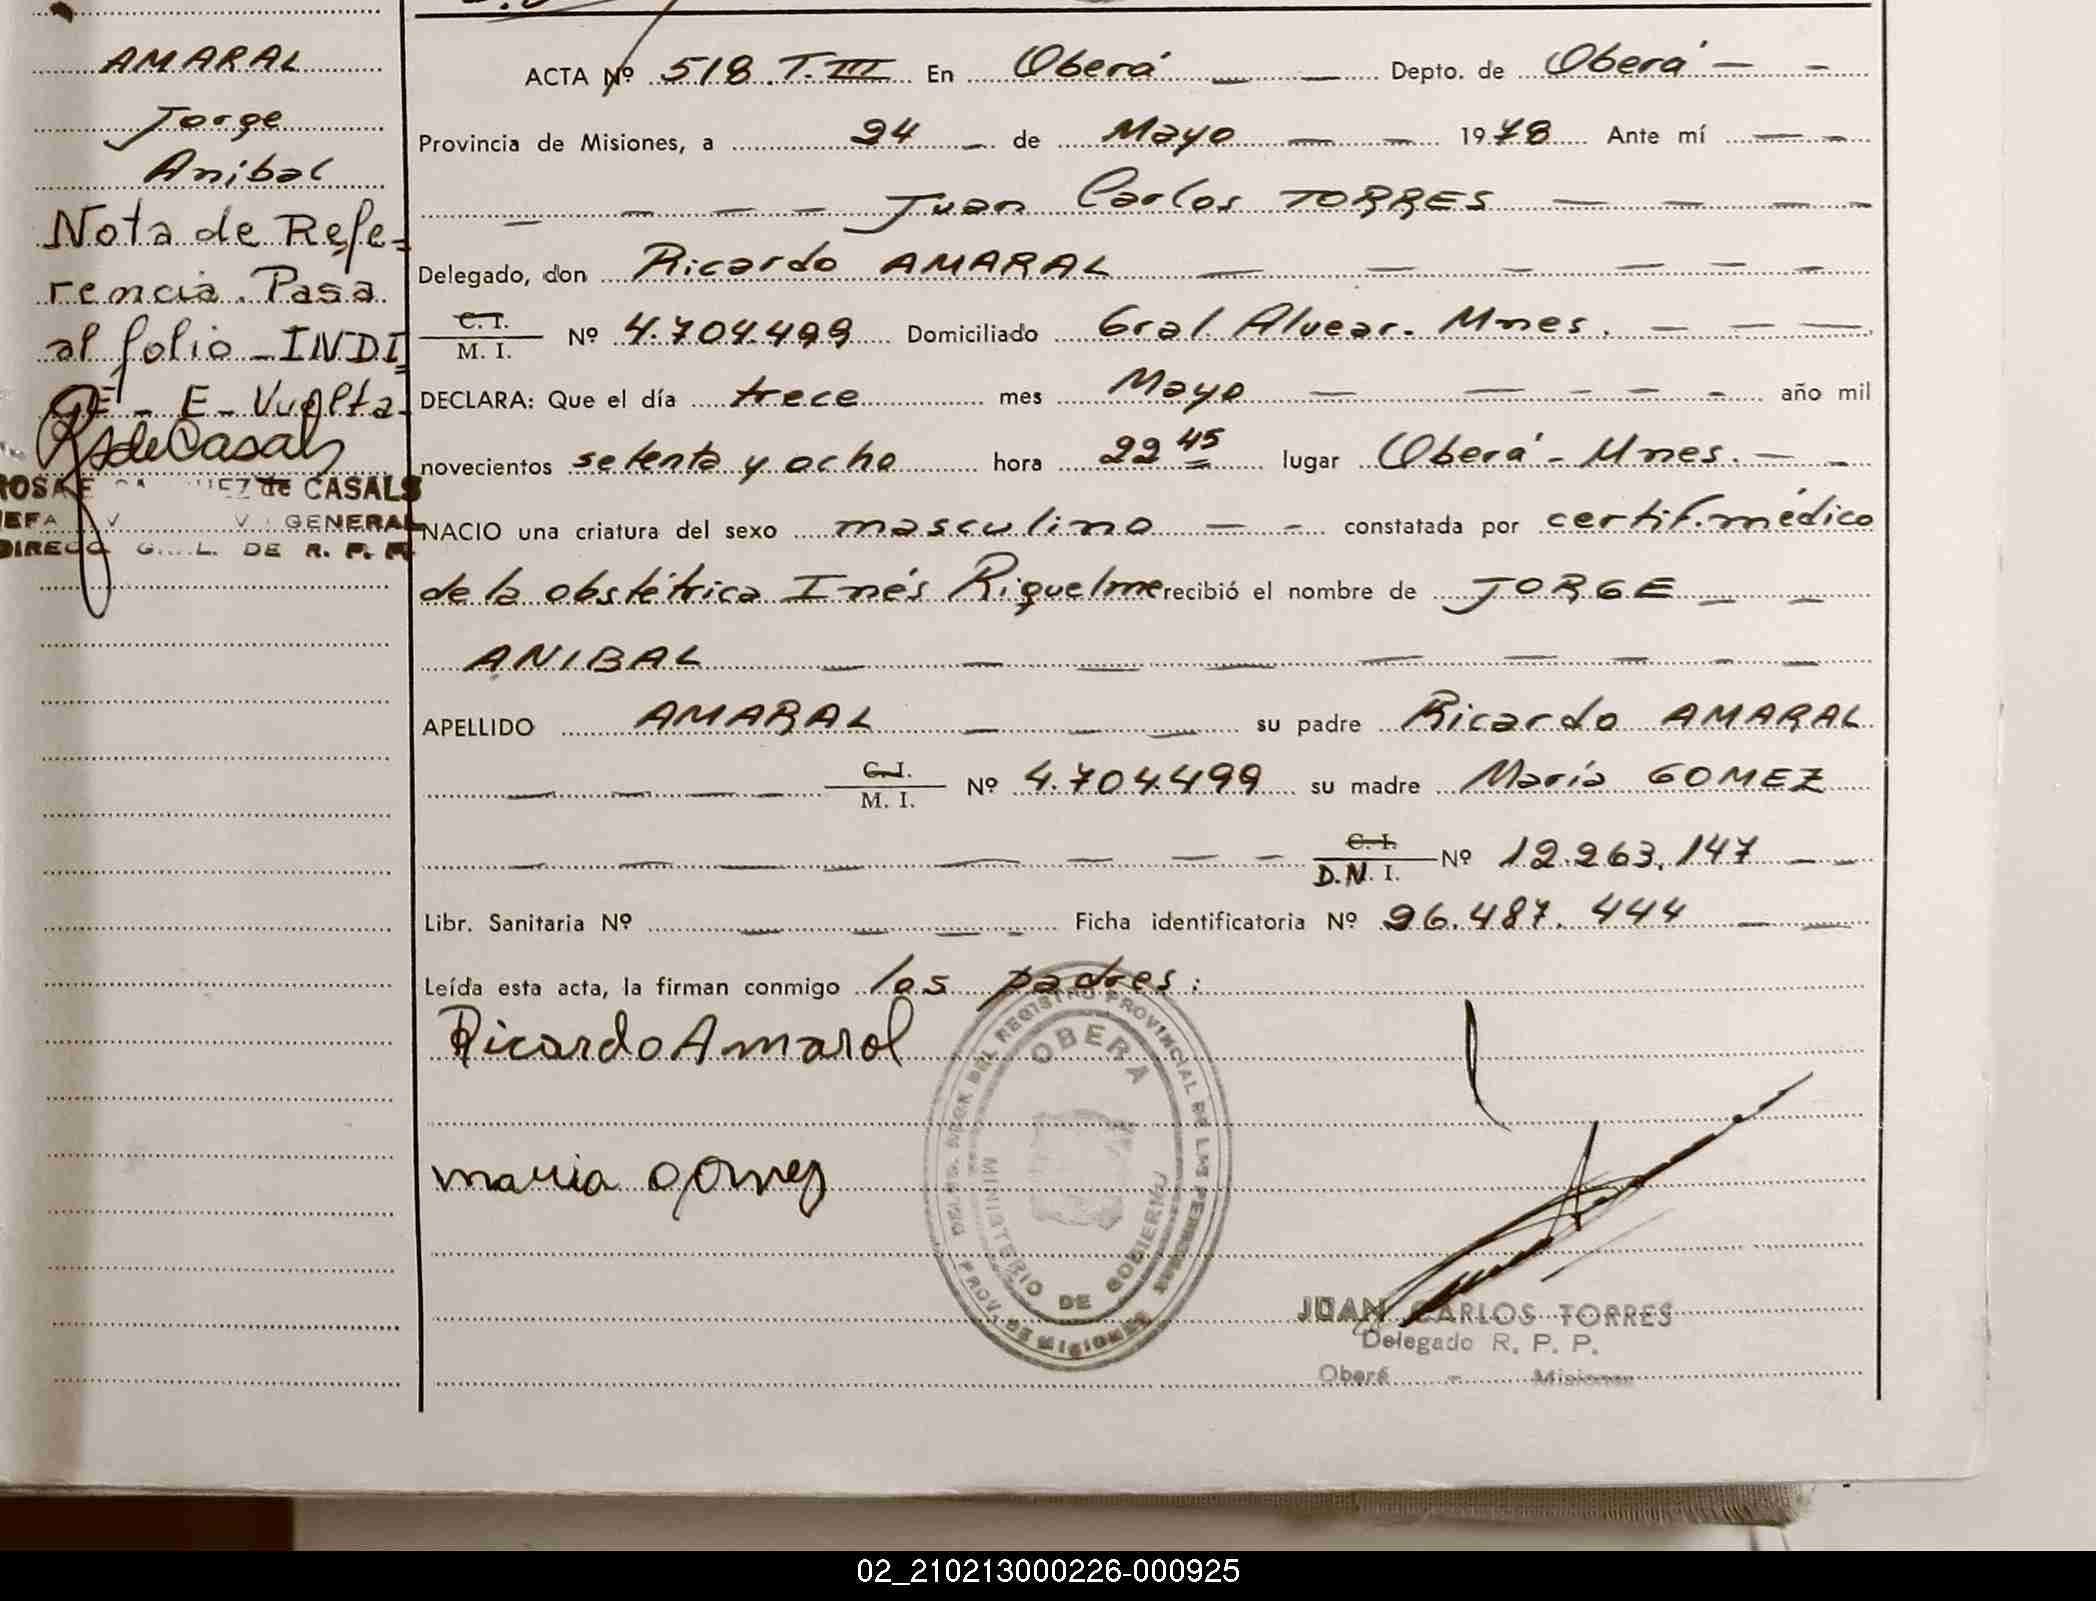 AMARAL
Jorge
Anibal
Nota de Refe-
rencia. Pasa
al folio - INDI
CE - E - Vuelta
RdeCasals
ROSA E de CASALS
GENERAL
DE R. P. P.
ACTA Nº 518 T. III En Oberá Depto. de Oberá
Provincia de Misiones, a 24 de Mayo 1978 Ante mí
Juan Carlos TORRES
Delegado, don Ricardo AMARAL
C. I.
M. I. Nº 4.704.499 Domiciliado Gral. Alvear. Mnes.
DECLARA: Que el día trece mes Mayo año mil
novecientos setenta y ocho hora 22 45 lugar Oberá - Mnes.
NACIO una criatura del sexo masculino constatada por certif. médico
de la obstétrica Inés Riquelme recibió el nombre de JORGE
ANIBAL
APELLIDO AMARAL su padre Ricardo AMARAL
C. I.
M. I. Nº 4.704.499 su madre María GOMEZ
C. I.
D.N. I. Nº 12.263.147
Libr. Sanitaria Nº Ficha identificatoria Nº 26.487.444
Leída esta acta, la firman conmigo los padres:
Ricardo Amaral
maria gomez
DEL REGISTRO PROVINCIAL DE LAS PERSONAS
OBERA
MINISTERIO DE GOBIERNO
PROV. DE MISIONES
JUAN CARLOS TORRES
Delegado R. P. P.
Oberá - Misiones
02_210213000226-000925